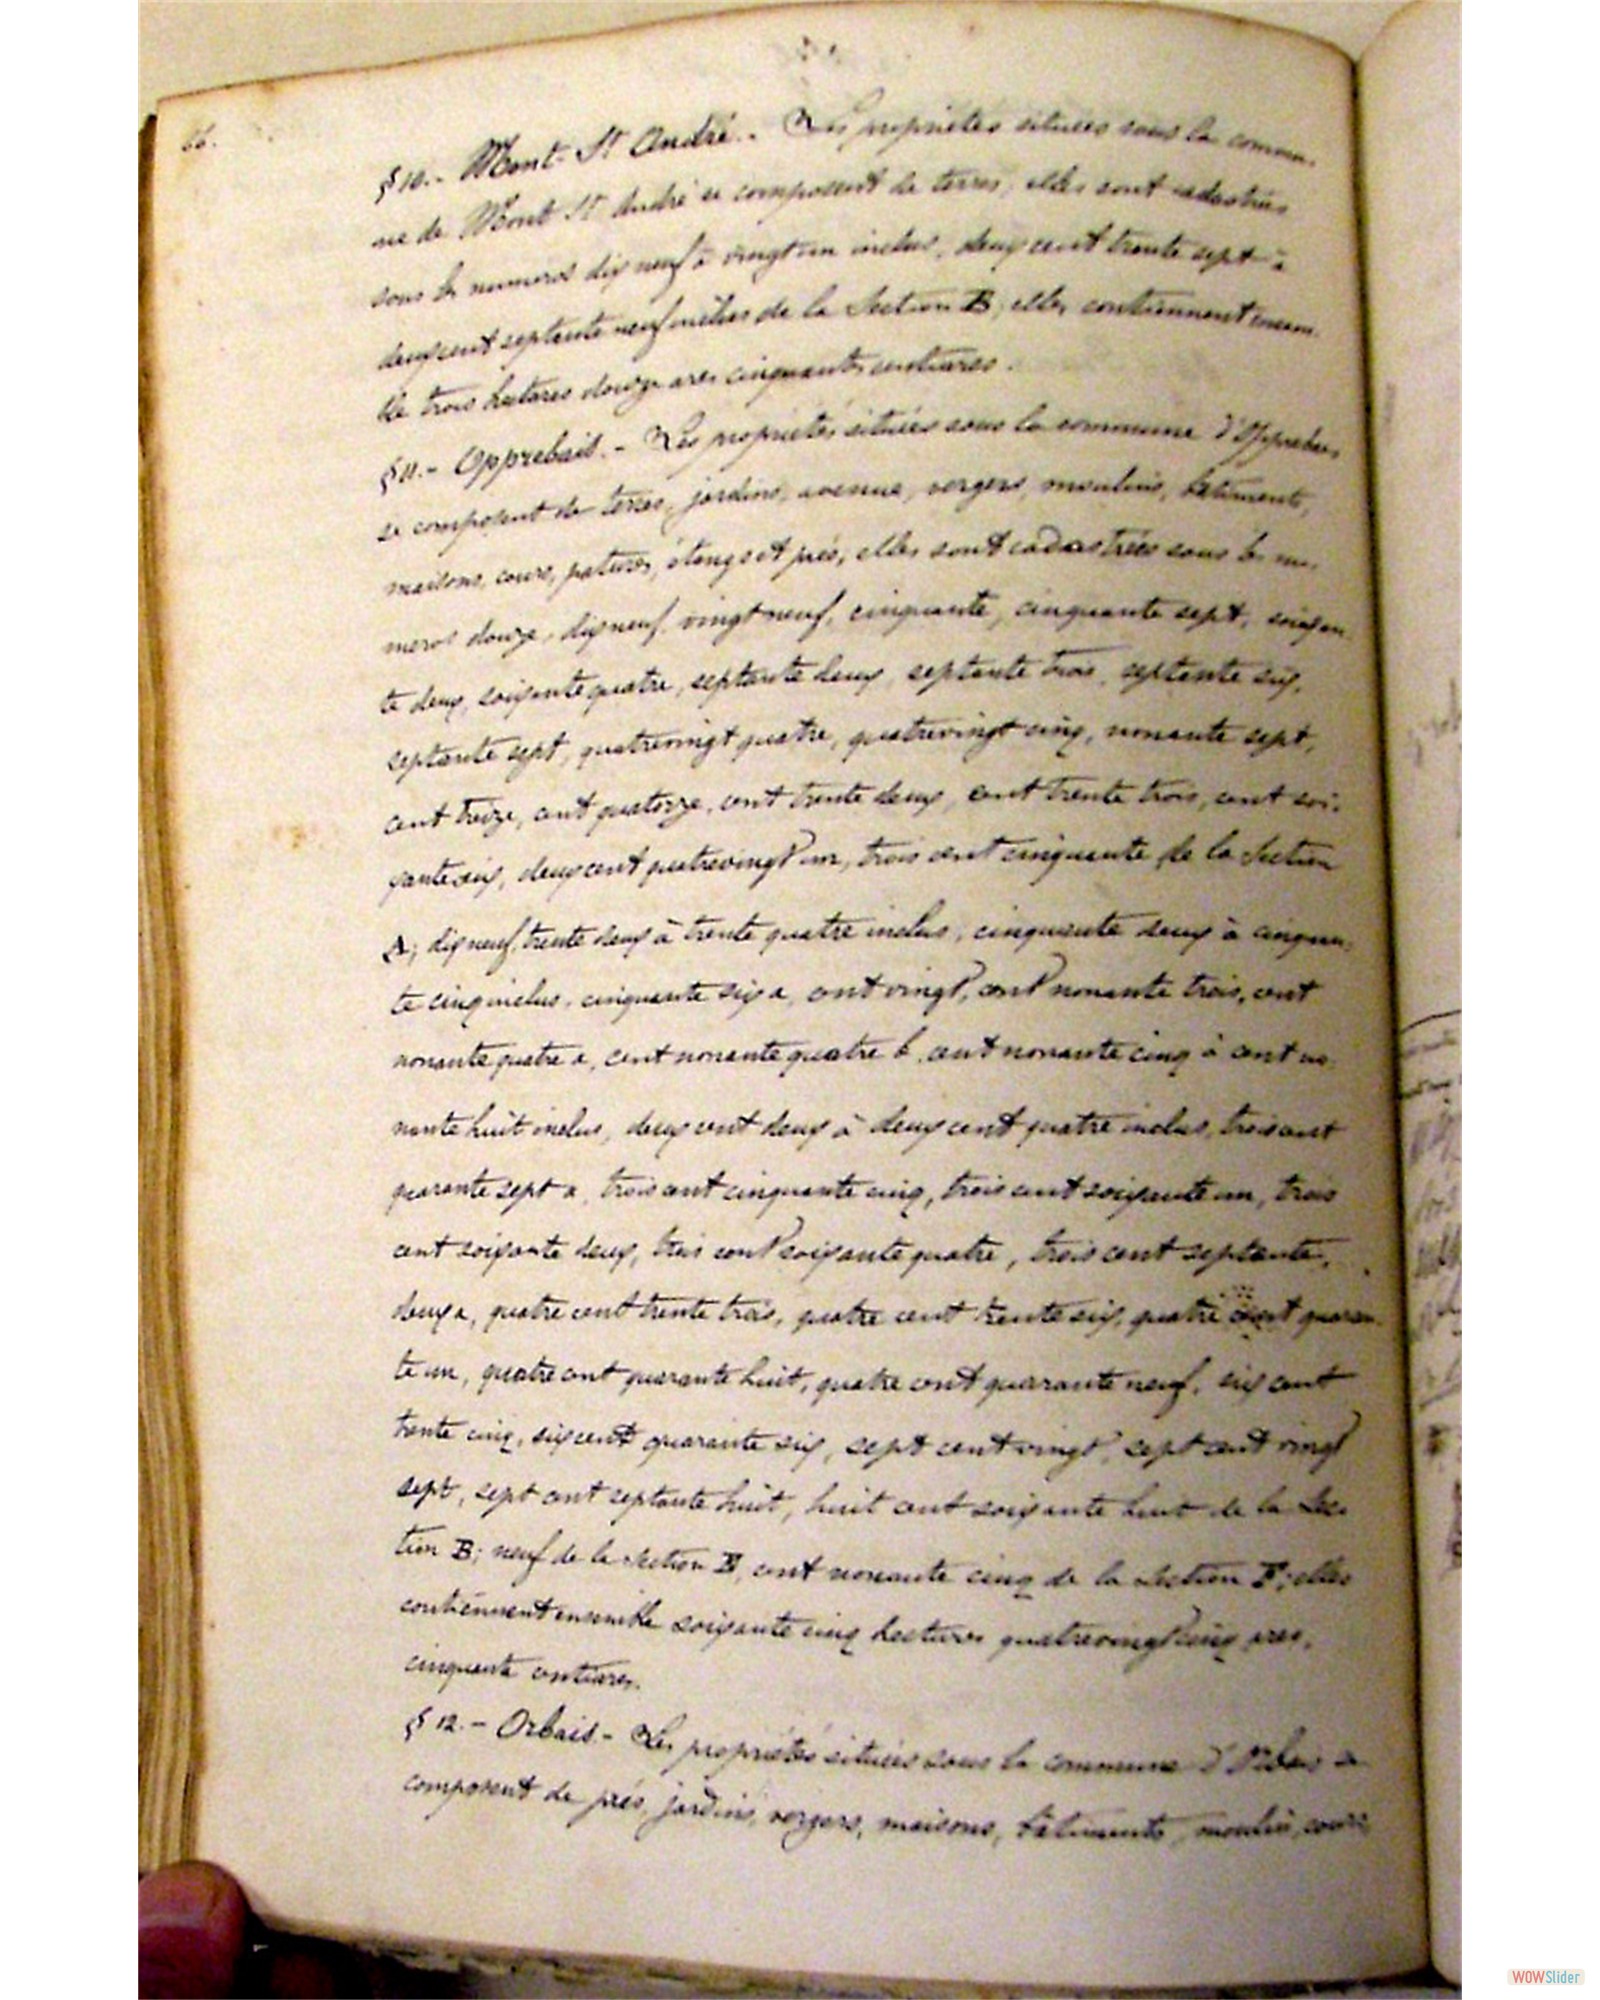 66.
§ 10.- Mont-St André.- Les propriétés situées sous la commu-
ne de Mont St André se composent de terres, elles sont cadastrées
sous les numeros dix neuf à vingt un inclus, deux cent trente sept à
deux cent septante neuf inclus de la Section B; elles contiennent ensem-
ble trois hectares douze ares cinquante centiares.
§ 11.- Opprebais.- Les propriétés situées sous la commune d'Opprebais
se composent de terres, jardins, avenue, vergers, moulins, bâtiments,
maisons, cours, patures, étangs et prés, elles sont cadastrées sous les nu-
meros douze, dix neuf, vingt neuf, cinquante, cinquante sept, soixan-
te deux, soixante quatre, septante deux, septante trois, septante six,
septante sept, quatrevingt quatre, quatrevingt cinq, nonante sept,
cent treize, cent quatorze, cent trente deux, cent trente trois, cent soi-
xante six, deux cent quatrevingt un, trois cent cinquante de la Section
A; dix neuf, trente deux à trente quatre inclus, cinquante deux à cinquan-
te cinq inclus, cinquante six a, cent vingt, cent nonante trois, cent
nonante quatre a, cent nonante quatre b, cent nonante cinq à cent no-
nante huit inclus, deux cent deux à deux cent quatre inclus, trois cent
quarante sept a, trois cent cinquante cinq, trois cent soixante un, trois
cent soixante deux, trois cent soixante quatre, trois cent septante
deux a, quatre cent trente trois, quatre cent trente six, quatre cent quaran-
te un, quatre cent quarante huit, quatre cent quarante neuf, six cent
trente cinq, six cent quarante six, sept cent vingt, sept cent vingt
sept, sept cent septante huit, huit cent soixante huit de la Sec-
tion B; neuf de la Section cent nonante cinq de la Section F; elles
contiennent ensemble soixante cinq hectares quatrevingt cinq ares,
cinquante centiares.
§ 12.- Orbais.- Les propriétés situées sous la commune d'Orbais se
composent de prés, jardins, vergers, maisons, bâtiments, moulin, cours
WOWSlider